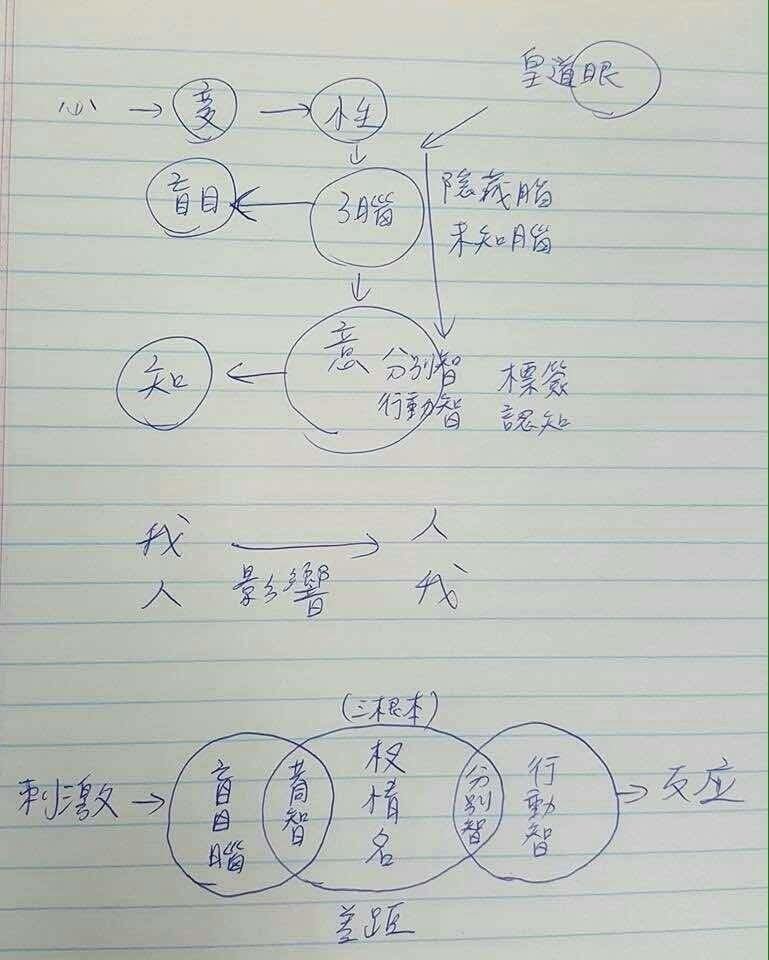 皇道眼
心 → 变 → 性
盲目 ← 3腦 隱藏腦
未知腦
意
知 ← 分別智 標簽
行動智 認知
我 → 人
人 影響 我
(三根本)
刺激 → 盲目腦 权情名 分別智 行動智 → 反应
差距